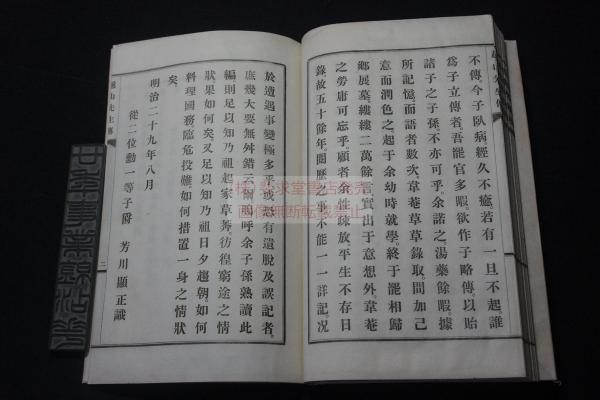 不傳。今子臥病經久不癒。若有一旦不起。誰
爲子立傳者。吾罷官多暇。欲作子略傳以貽
諸子之子孫。不亦可乎。余諾之。湯藥餘暇。據
所記憶。而語者數次。韋菴草草錄取。間加己
意而潤色之。起于余幼時就學。終于罷相歸
鄉展墓。縷縷二萬餘言。實出于意想外。韋菴
之勞庸可忘乎。顧者余性疎放。平生不存日
錄。故五十餘年。閱歷之事。不能一一詳記。况
於遭遇事變極多乎。或恐有遺脫及誤記者。
庶幾大要無舛錯云爾。嗚呼余子孫熟讀此
編。則足以知乃祖起家草莽。彷徨窮途之情
狀果如何矣。又足以知乃祖日夕趨朝。如何
料理國務。臨危投難。如何措置一身之情狀
矣。
明治二十九年八月
從二位勳一等子爵 芳川顯正識
越山先生傳
二